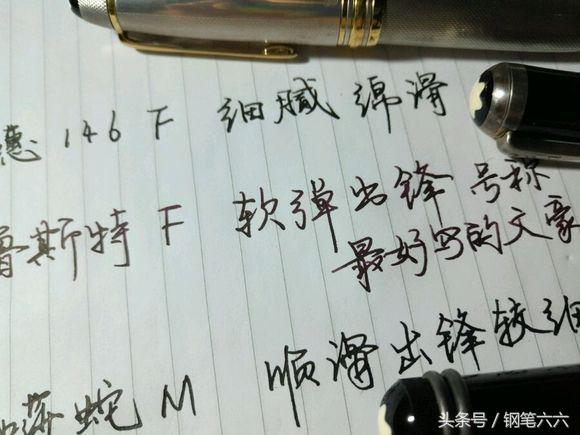 146 F 细腻绵滑
鲁斯特 F 软弹出锋 号称
最好写的文豪
莎蛇 M 顺滑出锋较细
头条号 / 钢笔六六